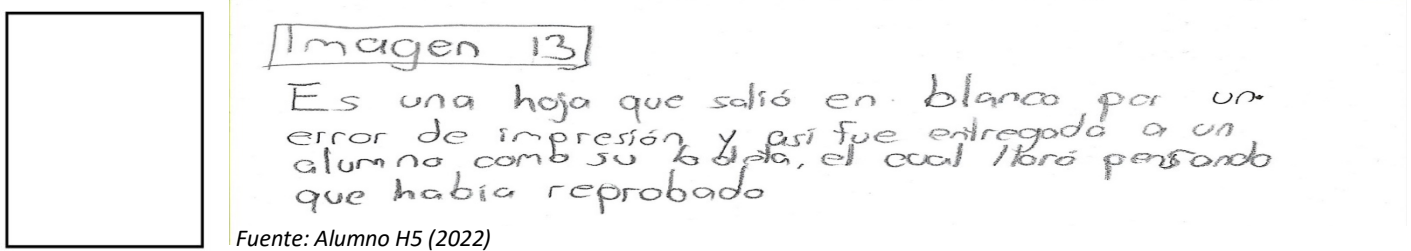 Imagen 13
Es una hoja que salió en blanco por un
error de impresión y así fue entregada a un
alumno como su boleta, el cual lloró pensando
que había reprobado
Fuente: Alumno H5 (2022)